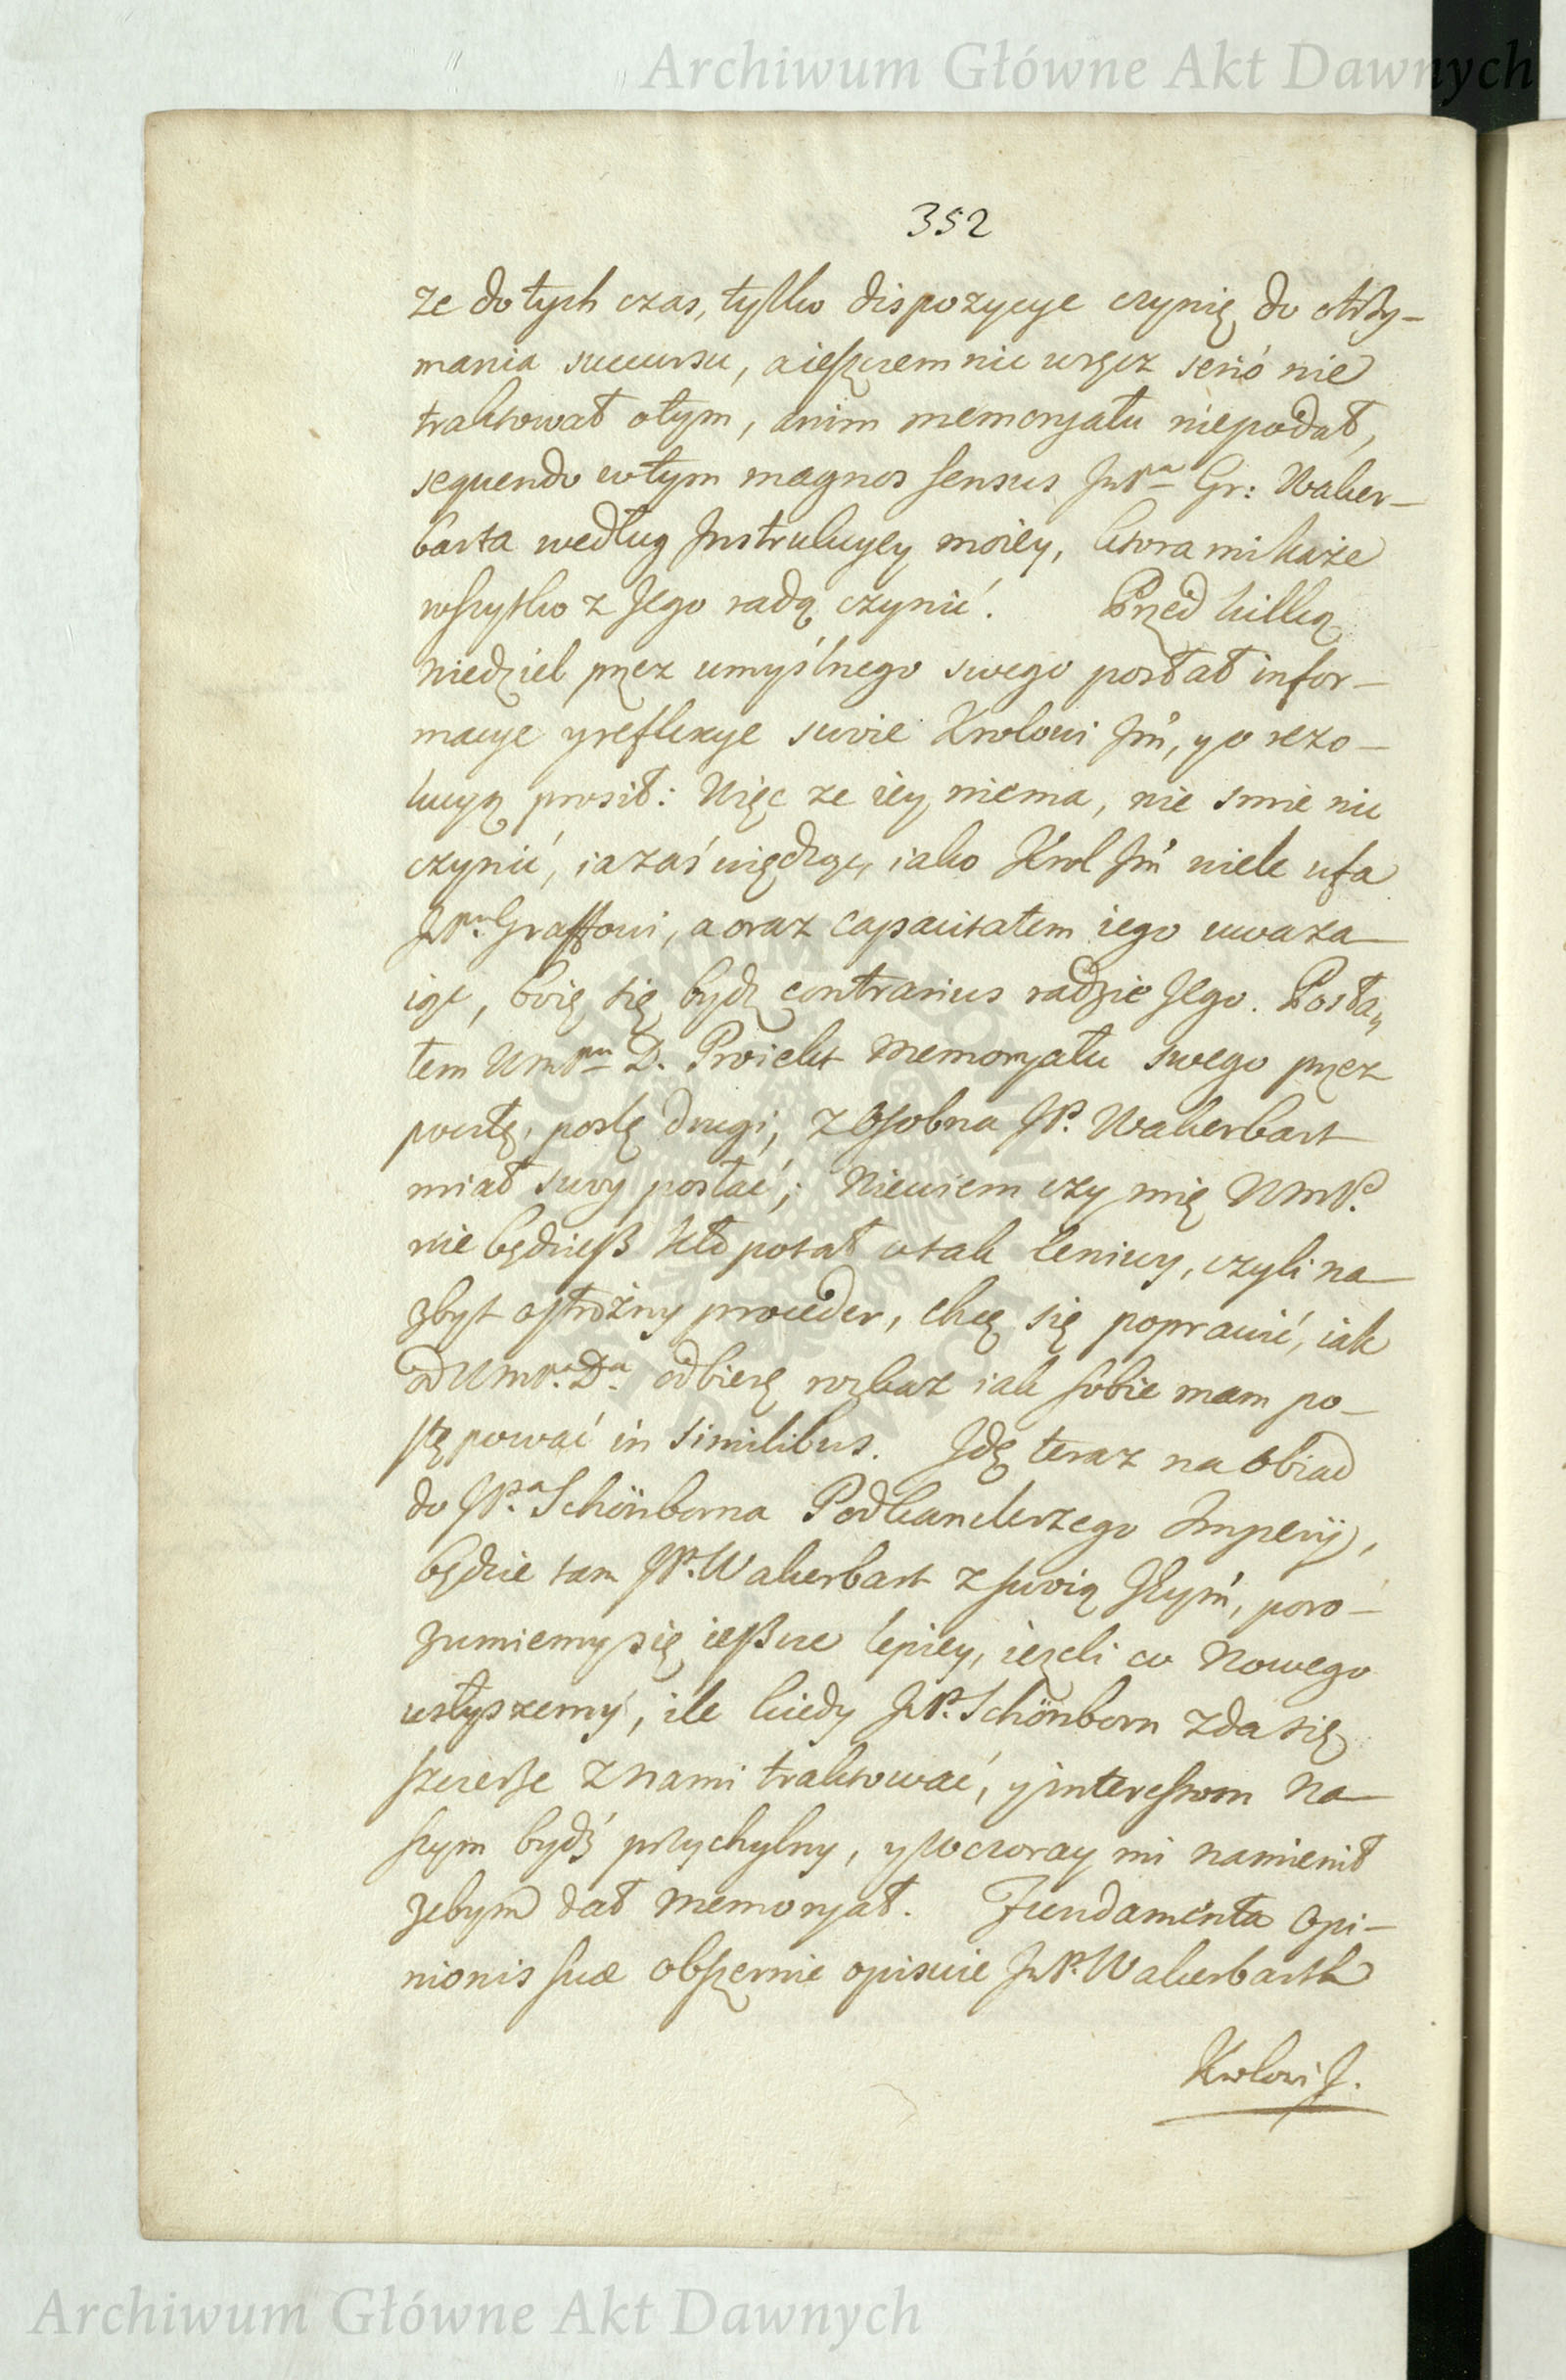 Archiwum Główne Akt Dawnych
352
ze do tych czas, tylko dispozycye czynię do otrzy-
mania succursu, a ieszczem nic wręcz serió nie
traktował o tym, anim memoryału niepodał,
sequendo w tym magnos sensus JmPa Gr: Waker-
barta według Instrukcyey moiey, ktora mi każe
wszytko z Jego radą czynić. Przed kilką
niedziel przez umyślnego swego posłał infor-
macye y reflexye swoie Krolowi Jm̃, y o rezo-
lucyą prosił: Więc ze iey niema, nie smie nic
czynić, ia zaś więdząc, iako Krol Jm̃ wiele ufa
JPu. Graffowi, a oraz capacitatem iego uwaza-
iąc, boię się bydz contrarius radzie Jego. Posła,,
łem WmPu D. Proiekt memoryału swego przez
pocztę, poslę drugi, z osobna JP. Wakerbart
miał swoy posłać; Niewiem czy mię WmP.
nie będziesz kłopotał o tak leniwy, czyli na-
zbyt ostrożny proceder, chcę się poprawić, iak
od WmP.a Da. odbierę rozkaz iak sobie mam po-
stępować in similibus. Jdę teraz na obiad
do JP.a Schönborna Podkanclerzego Imperij,
będzie tam JP. Wakerbart z swoią Jeym̃, poro-
zumiemy się ieszcze lepiey, iezeli co nowego
usłyszemy, ile kiedy JP. Schönborn zda się
szczerze z nami traktować, y interessom na-
szym bydź przychylny, y wczoray mi namienił
zebym dał memoryał. Fundamenta opi-
nionis suæ obszernie opisuie JP. Wakerbarth
Krolowi J.
Archiwum Główne Akt Dawnych